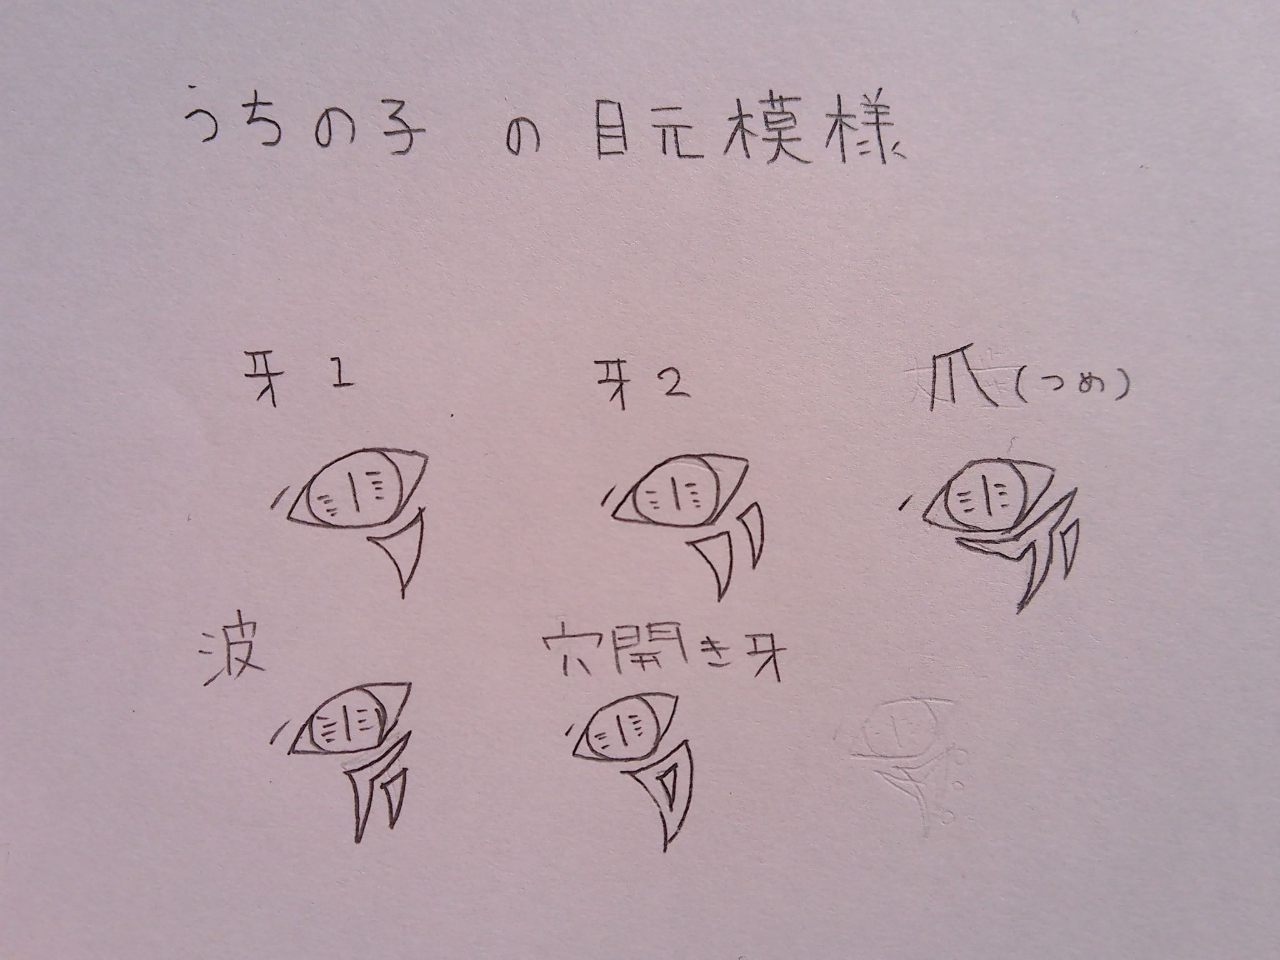 うちの子の目元模様
牙1 牙2 爪(つめ)
波 穴開き牙